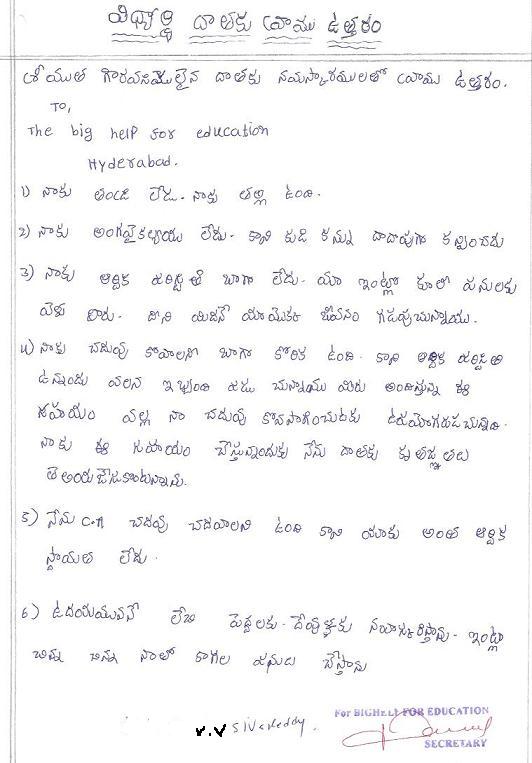 విద్యార్థి దాతకు వ్రాయు ఉత్తరం
శ్రీయుత గౌరవనీయులైన దాతకు నమస్కారములతో వ్రాయు ఉత్తరం.
TO,
The big help for education
Hyderabad.
1) నాకు తండ్రి లేడు. నాకు తల్లి ఉంది.
2) నాకు అంగవైకల్యము లేదు. కాని కుడి కన్ను దాదాపుగా కన్పించదు
3) నాకు ఆర్థిక పరిస్థితి బాగా లేదు. మా ఇంట్లో కూలి పనులకు
వెళుతారు. దాని మీదనే మా యొక్క జీవనం గడుపుచున్నాము.
4) నాకు చదువు కోవాలని బాగా కోరిక ఉంది. కాని ఆర్థిక పరిస్థితి
ఉన్నందు వలన ఇబ్బంది పడుచున్నాము మీరు అందిస్తున్న ఈ
సహాయం వల్ల నా చదువు కొనసాగించుటకు ఉపయోగపడుచున్నది.
నాకు ఈ సహాయం చేస్తున్నందుకు నేను దాతకు కృతజ్ఞతలు
తెలియజేసుకొంటున్నాను.
5) నేను C.A చదువు చదవాలని ఉంది కాని మాకు అంత ఆర్థిక
స్థోమత లేదు.
6) ఉదయమువనే లేచి పెద్దలకు. దేవుళ్లకు నమస్కరిస్తాను. ఇంట్లో
చిన్న చిన్న నాలో కాగల పనులు చేస్తాను
V.V Siva Reddy.
For BIGHELP FOR EDUCATION
SECRETARY